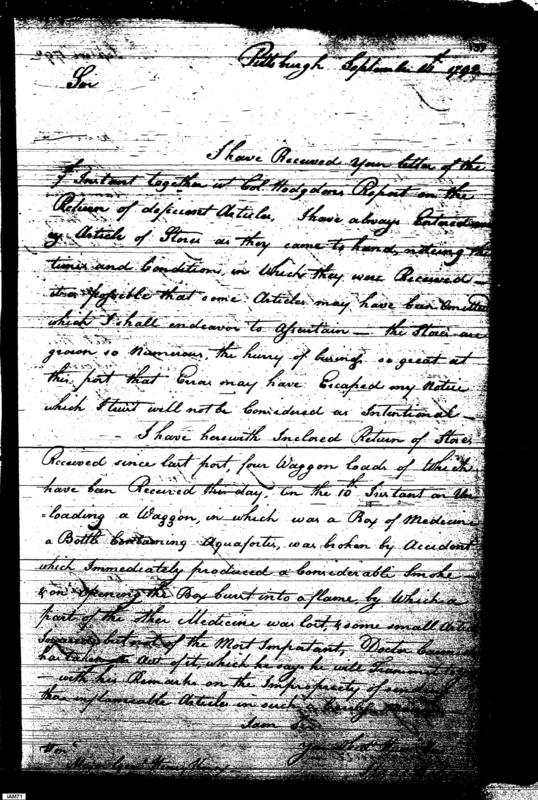 Pittsburgh Septembr 14th 1792
Sir
I have Received Your letter of the
7th Instant together wt Col. Hodgdons Report on the
Return of deficient Articles, I have always Entered
Article of Stores as they came to hand, noticing the
times and Condition, in Which they were Received —
its possible that some Articles may have ben Omitted
which I shall endeavor to Assertain — the Stores are
grown so Numerous, the hurry of business so great at
this port that Erras may have Escaped my Notice
which I trust will not be Considered as Intentional —
I have herewith Inclosed Return of Stores
Received since last port, four Waggon loads of Which
have ben Received this day. On the 10th Instant on Un
=loading a Waggon, in which was a Box of Medicine
a Bottle Containing Aquafortes, was broken by Accident
which Immediately produced a Considerable Smoke
& on opening the Box burst into a flame, by Which a
part of the other Medicine was lost, & some small
but not of the Most Important, Doctor
has taken an Act of it, which he says he will
with his Remarks on the Impropriety of sending
inflameable Articles in such a
I am
Honl
Major Genl Henry Knox
IAM71